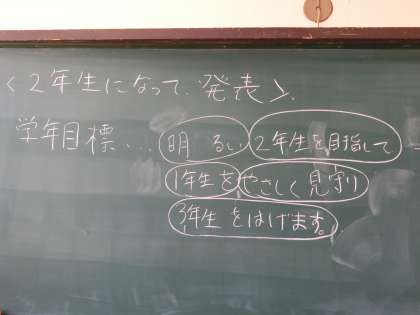 <2年生になって、発表>
学年目標...明るい2年生を目指して
1年生をやさしく見守り
3年生をはげます。